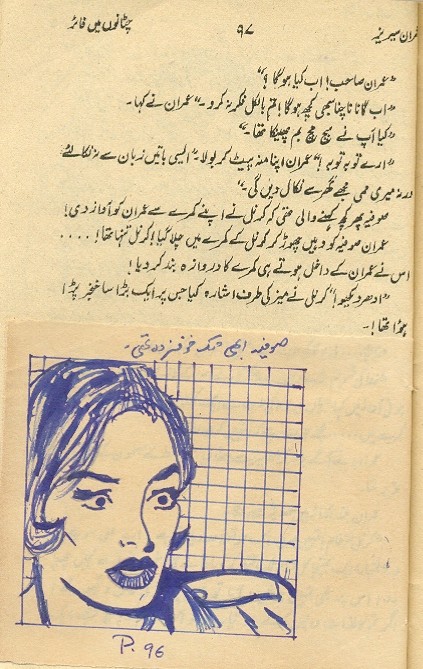 عمران سیریز ۹۷ چٹانوں میں فائر
”عمران صاحب! اب کیا ہوگا؟“
”اب گانا ناچنا سبھی کچھ ہوگا! تم بالکل فکر نہ کرو۔“ عمران نے کہا۔
”کیا آپ نے سچ مچ بم پھینکا تھا۔“
”ارے توبہ توبہ!“ عمران اپنا منہ پیٹ کر بولا۔ ”ایسی باتیں زبان سے نہ نکالئے
ورنہ میری ممی مجھے گھر سے نکال دیں گی۔“
صوفیہ پھر کچھ کہنے والی تھی کہ کرنل نے اپنے کمرے سے عمران کو آواز دی!
عمران صوفیہ کو وہیں چھوڑ کر کرنل کے کمرے میں چلا گیا! کرنل تنہا تھا! ....
اس نے عمران کے داخل ہوتے ہی کمرے کا دروازہ بند کر دیا!
”ادھر دیکھو!“ کرنل نے میز کی طرف اشارہ کیا جس پر ایک بڑا سا خنجر پڑا
ہوا تھا!۔
صوفیہ ابھی تک خوفزدہ تھی۔
P. 96